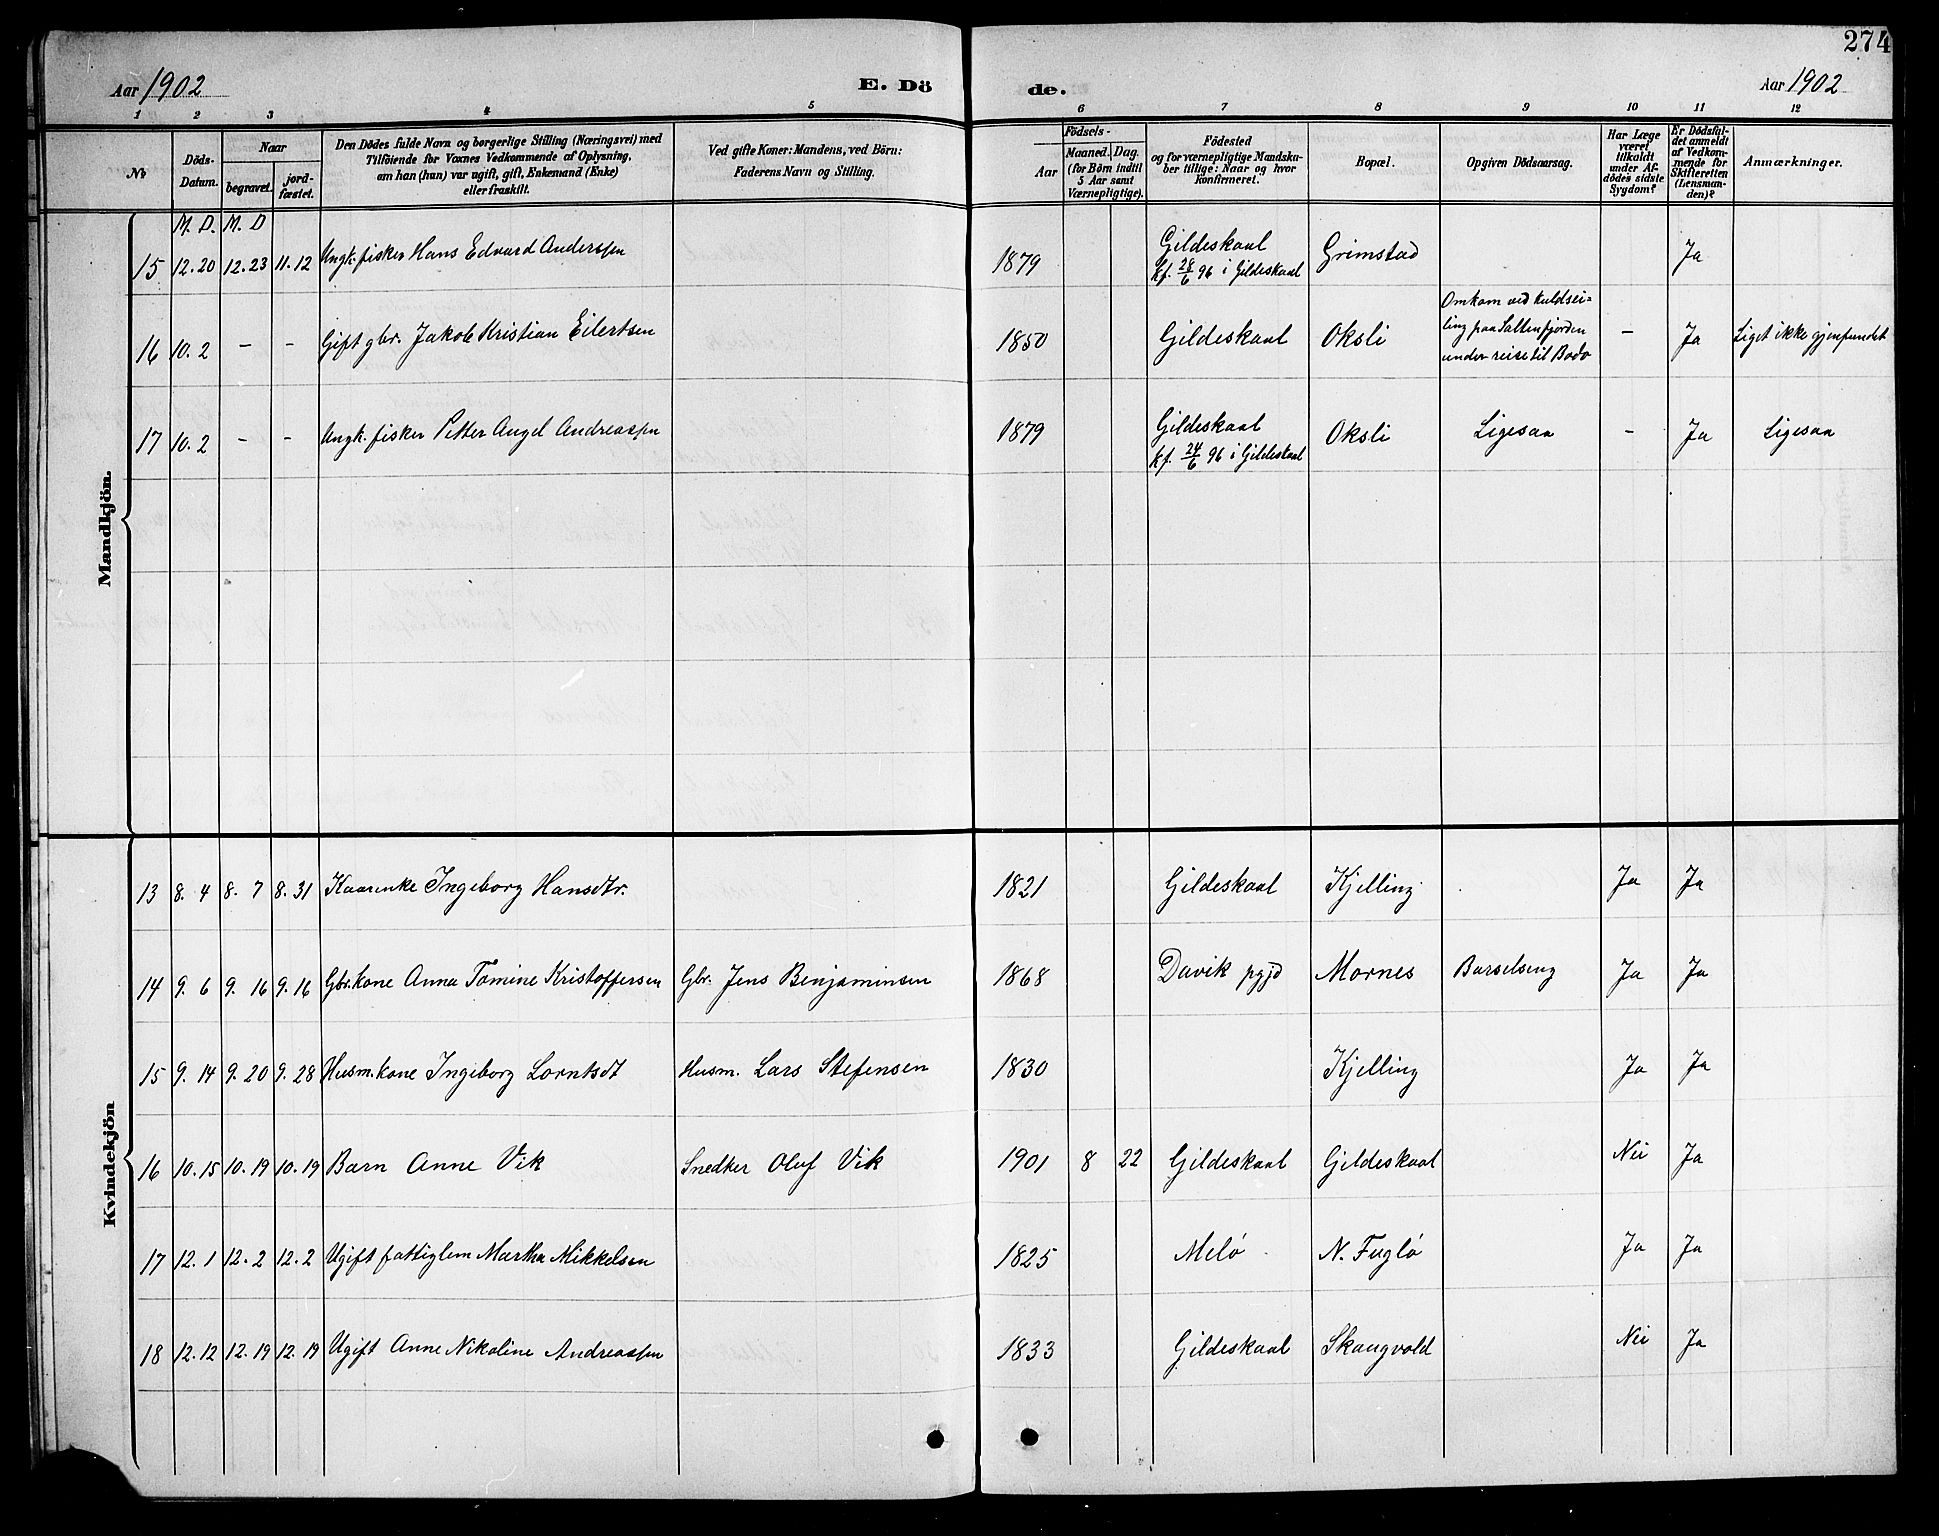 274
Aar 1902 E. Dö de. Aar 1902
1 2 3 4 5 6 7 8 9 10 11 12
No
Döds-Datum.
Naar
begravet. jord-fæstet.
Den Dödes fulde Navn og borgerlige Stilling (Næringsvei) med
Tilföiende for Voxnes Vedkommende af Oplysning,
om han (hun) var ugift, gift, Enkemand (Enke)
eller fraskilt.
Ved gifte Koner: Mandens, ved Börn:
Faderens Navn og Stilling.
Födsels-
Aar Maaned. Dag.
(for Børn indtil
5 Aar samt
Værnepligtige).
Födested
og for værnepligtige Mandska-
ber tillige: Naar og hvor
konfirmeret.
Bopæl.
Opgiven Dödsaarsag.
Har Læge
været
tilkaldt
under Af-
dödes sidste
Sygdom?
Er Dödsfal-
det anmeldt
af Vedkom-
mende for
Skifteretten
(Lensman-
den)?
Anmærkninger.
Mandkjön.
M. D. M. D
15 12.20 12.23 11.12 Ungk. fisker Hans Edvard Anderssen 1879 Gildeskaal Grimstad Ja
kf. 28/6 96 i Gildeskaal
16 10.2 - - Gift gbr. Jakob Kristian Eilertsen 1850 Gildeskaal Oksli Omkom ved kuldsei-
ling paa Saltenfjorden
under reise til Bodø - Ja Liget ikke gjenfundet
17 10.2 - - Ungk. fisker Petter Angel Andreassen 1879 Gildeskaal Oksli Ligesaa - Ja Ligesaa
kf. 24/6 96 i Gildeskaal
Kvindekjön
13 8.4 8.7 8.31 Kaarenke Ingeborg Hansdtr. 1821 Gildeskaal Kjelling Ja Ja
14 9.6 9.16 9.16 Gbr.kone Anna Tomine Kristoffersen Gbr. Jens Benjaminsen 1868 Davik pgjd Mornes Barselseng Ja Ja
15 9.14 9.20 9.28 Husm.kone Ingeborg Lorntsdt Husm. Lars Stefensen 1830 Kjelling Ja Ja
16 10.15 10.19 10.19 Barn Anne Vik Snedker Oluf Vik 1901 8 22 Gildeskaal Gildeskaal Nei Ja
17 12.1 12.2 12.2 Ugift fattiglem Martha Mikkelsen 1825 Melø N. Fuglø Ja Ja
18 12.12 12.19 12.19 Ugift Anne Nikoline Andreassen 1833 Gildeskaal Skaugvold Nei Ja